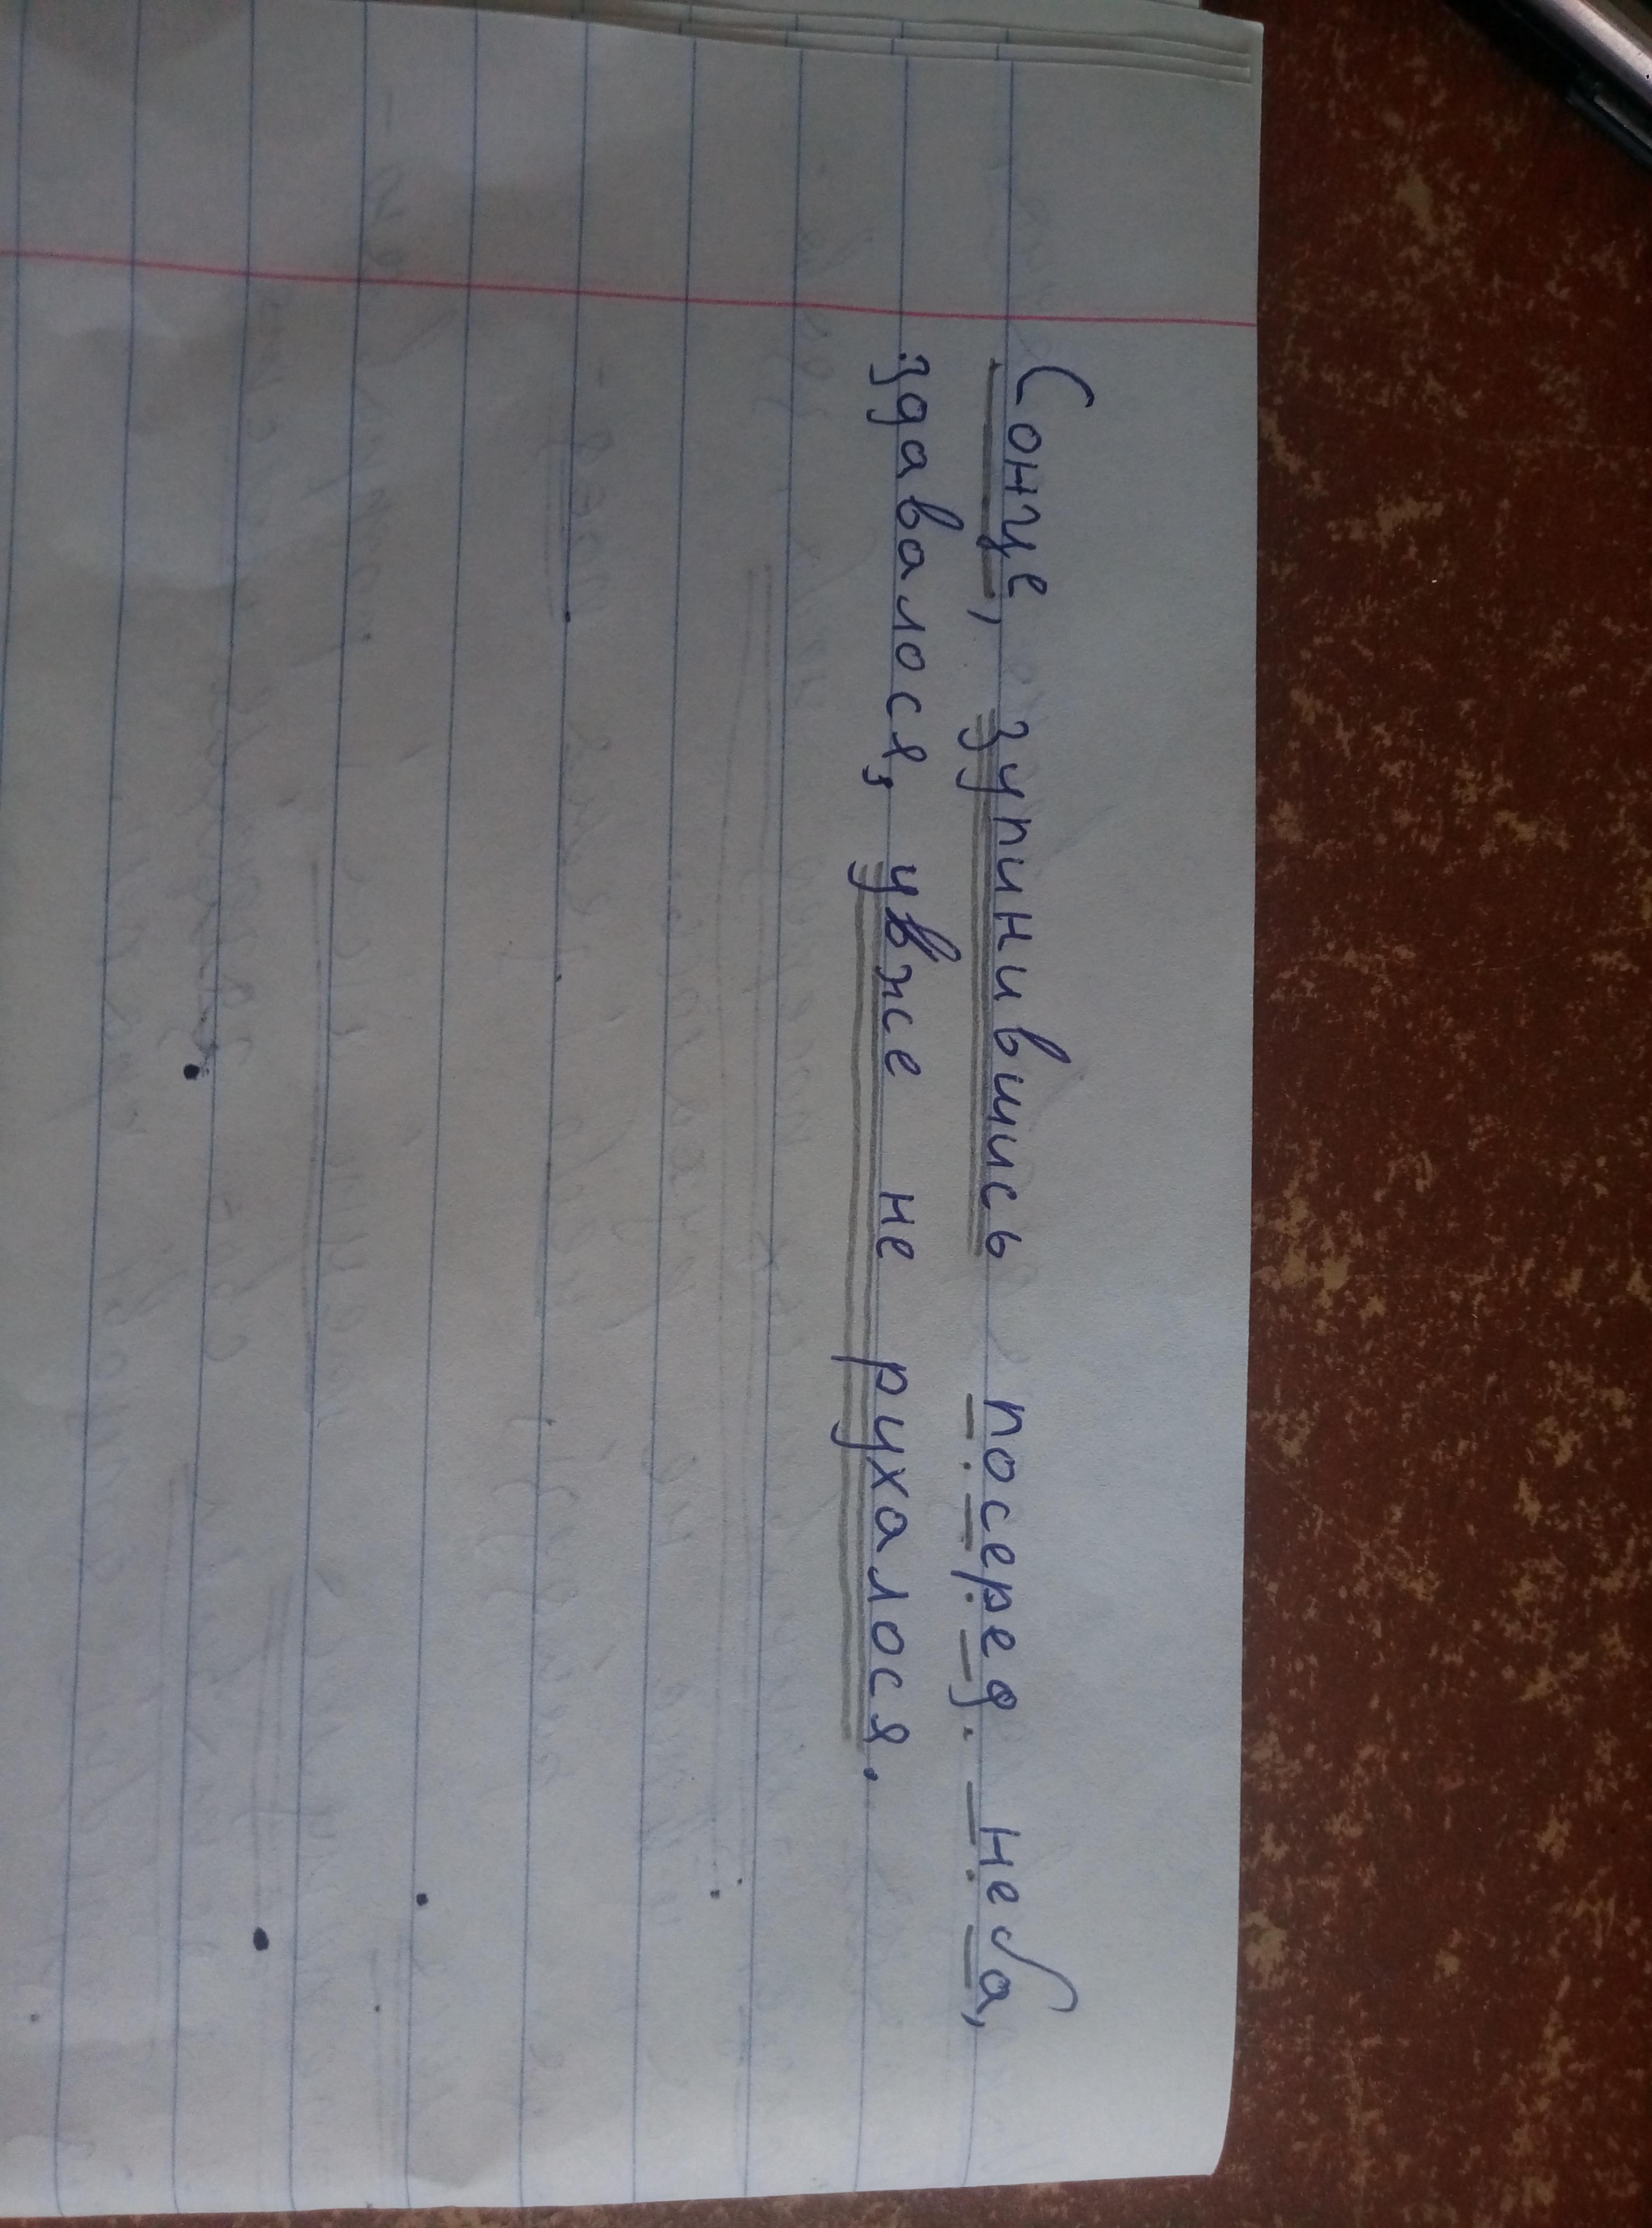 Сонце, зупинившись посеред неба,
здавалося, увже не рухалося.